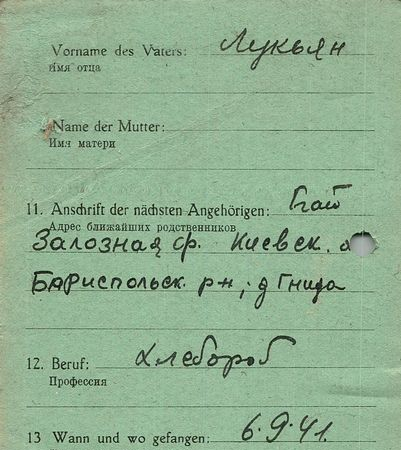 Vorname des Vaters: Лукьян
Имя отца
Name der Mutter:
Имя матери
11. Anschrift der nächsten Angehörigen:
Адрес ближайших родственников
Киевск. о
Бариспольск. р-н, д Гнида
12. Beruf: хлебороб
Профессия
13 Wann und wo gefangen: 6.9.41.